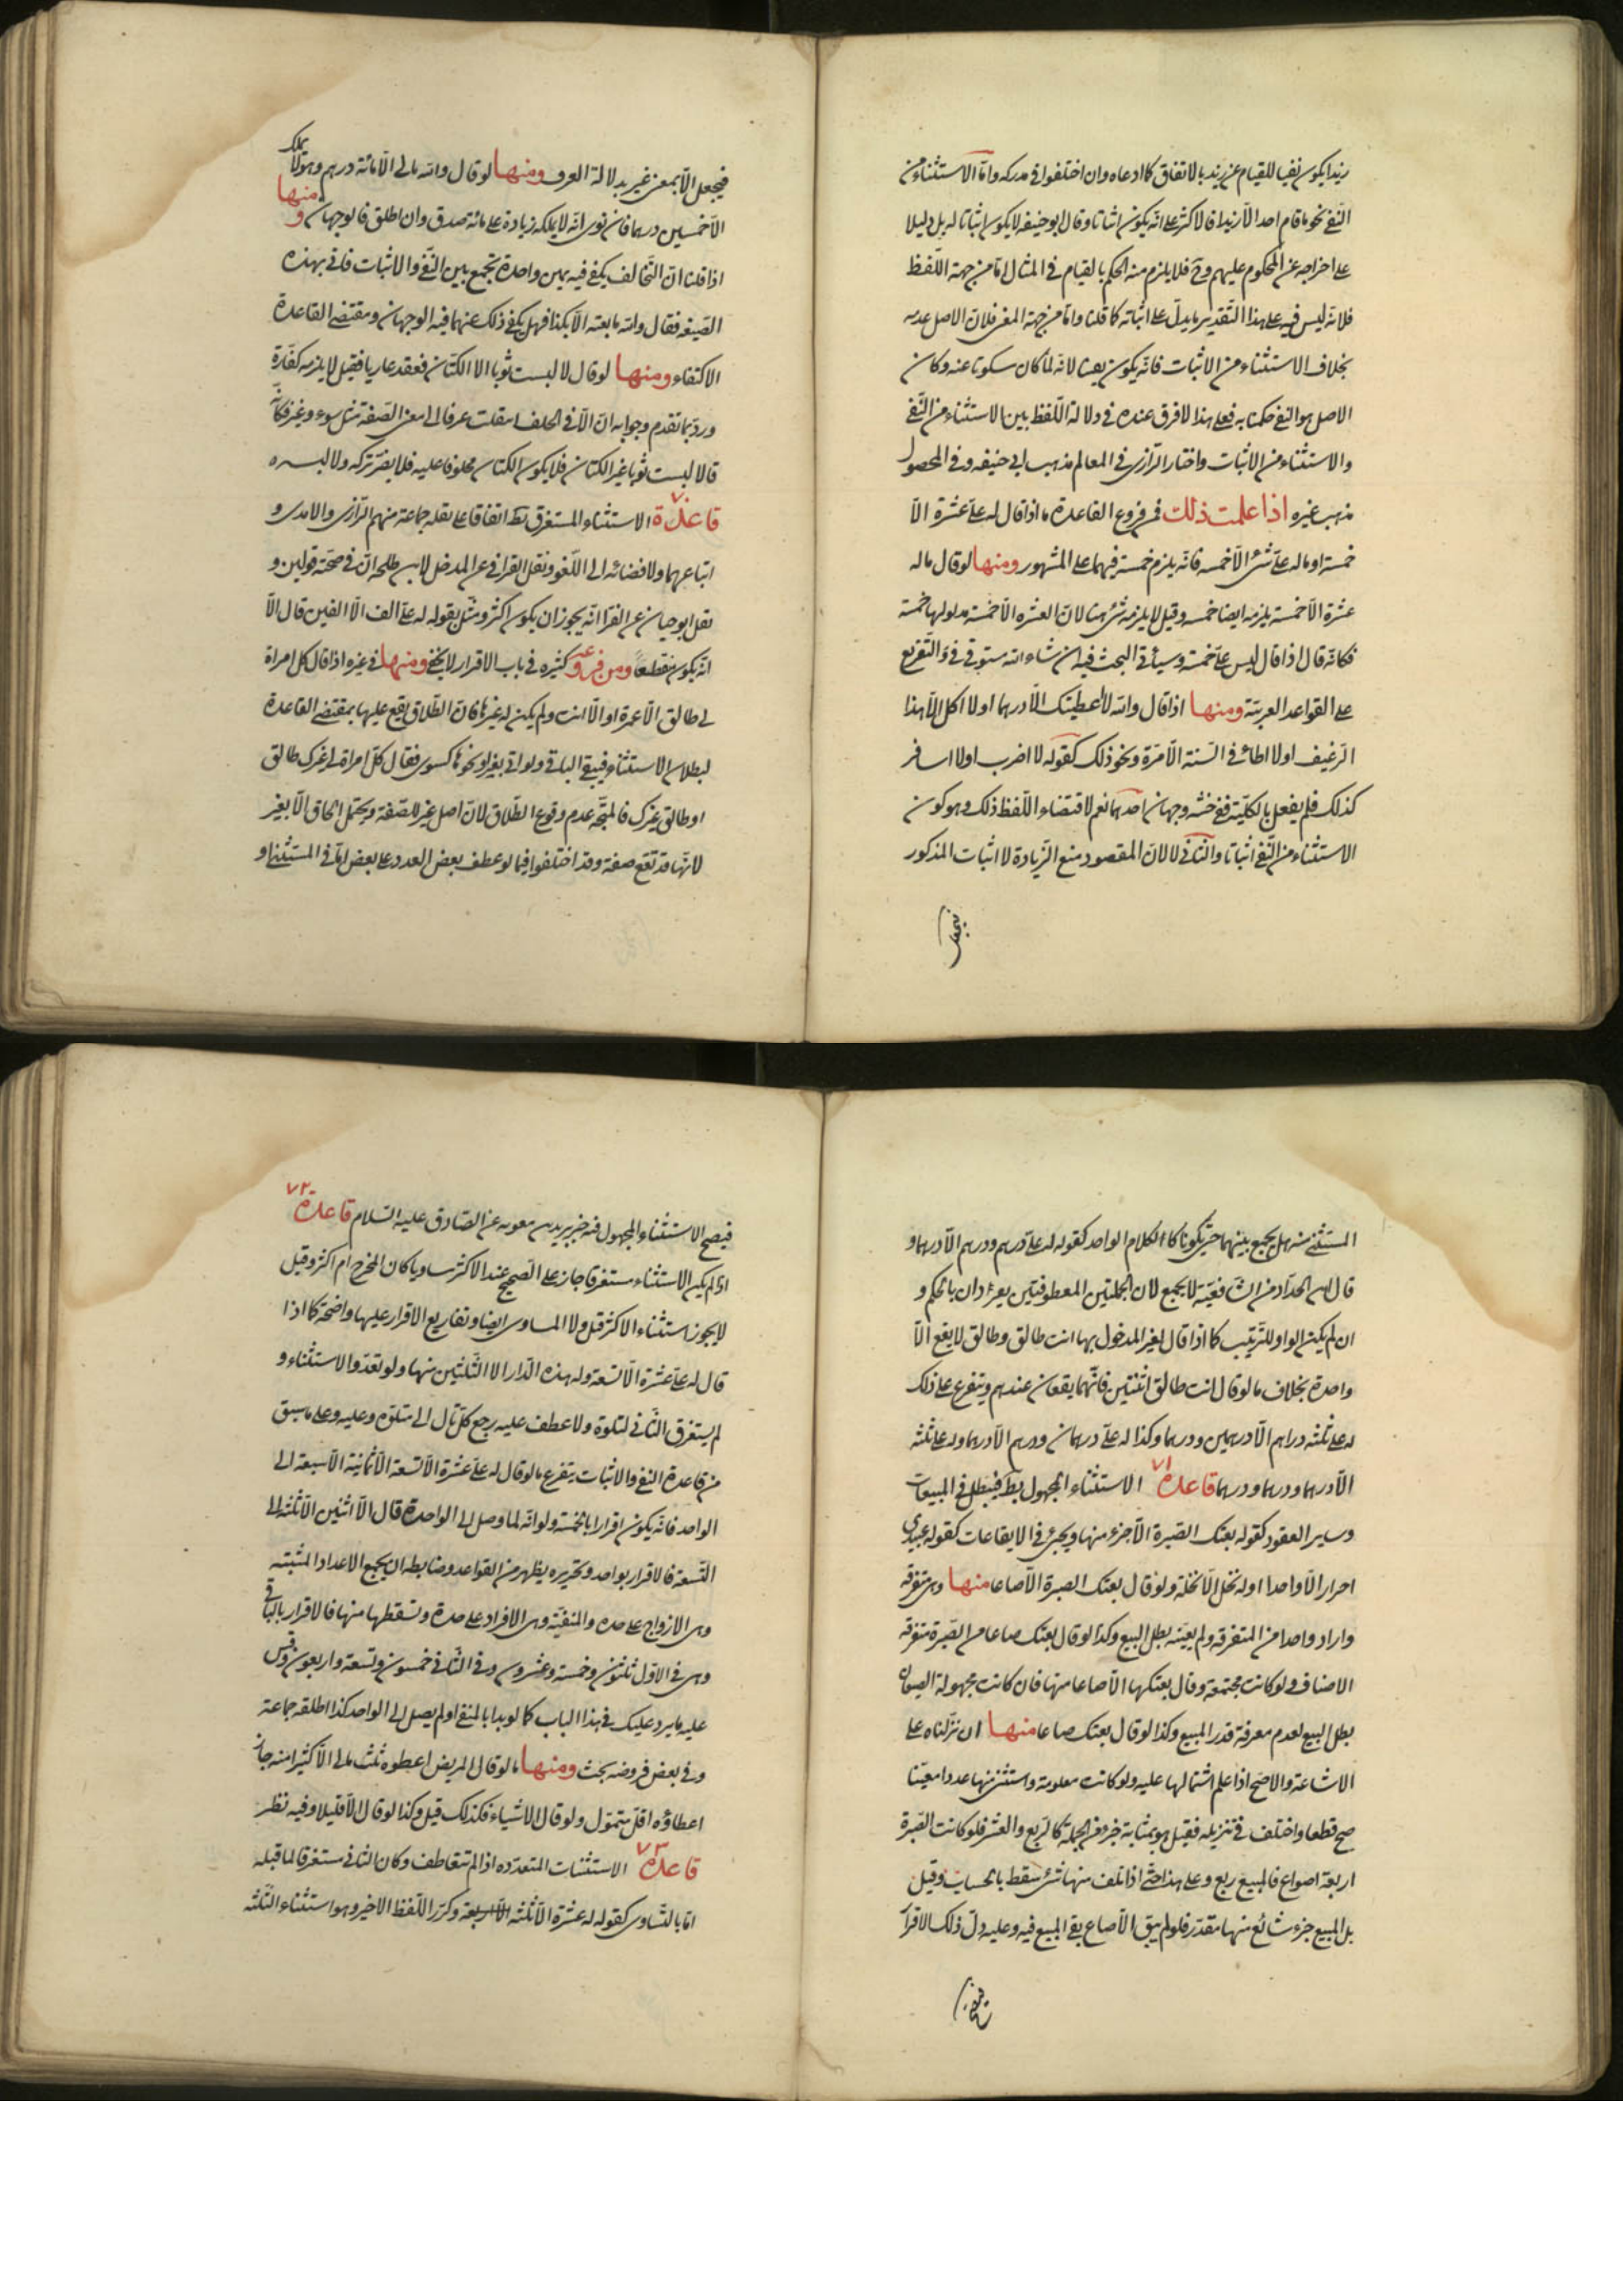 زيدا يكون نفيا للقيام عن زيد بالاتفاق كما ادعاه وان اختلفوا في مدركه واما الاستثناء من
النفي نحو ما قام احد الا زيدا فالاكثر على انه يكون اثباتا وقال ابو حنيفه لا يكون اثباتا له بل دليلا
على اخراجه عن المحكوم عليهم وح فلا يلزم منه الحكم بالقيام في المثال اما من جهة اللفظ
فلانه ليس فيه على هذا التقدير ما يدل على اثباته كما قلنا واما من جهة المعنى فلان الاصل عدمه
بخلاف الاستثناء من الاثبات فانه يكون نفيا لانه لما كان سكوتا عنه وكان
الاصل هو النفي حكمنا به فعلى هذا لا فرق عنده في دلالة اللفظ بين الاستثناء من النفي
والاستثناء من الاثبات واختار الرازي في المعالم مذهب ابي حنيفه وفي المحصول
مذهب غيره اذا علمت ذلك فمن فروع القاعدة ما اذا قال له علي عشرة الا
خمسة او ماله علي شئ الا خمسه فانه يلزم خمسة فيهما على المشهور ومنها لو قال ماله
عشرة الا خمسة يلزمه ايضا خمسه وقيل لا يلزمه شئ هنا لان العشره الا خمسة مدلولها خمسة
فكانه قال اذا قال ليس علي خمسة وسيأتي البحث فيه ان شاء الله مستوفى في التفريع
على القواعد العربية ومنها اذا قال والله لا اعطيتك الا درهما او لا اكل الا هذا
الرغيف او لا اطأ في السنة الا مرة ونحو ذلك كقوله لا اضرب او لا اسافر
كذلك فلم يفعل بالكلية ففي حنثه وجهان احدهما نعم لاقتضاء اللفظ ذلك وهو كون
الاستثناء من النفي اثباتا والثاني لا لان المقصود منع الزيادة لا اثبات المذكور
فيجعل
فيجعل الا بمعنى غير بدلالة العرف ومنها لو قال والله مالي الا مائة درهم وهو لا يملك
الا خمسين درهما فان نوى انه لا يملك زيادة على مائة صدق وان اطلق فالوجهان ومنها
اذا قلنا ان التحالف يكفي فيه يمين واحدة تجمع بين النفي والاثبات فاتي بهذه
الصيغه فقال والله ما بعته الا بكذا فهل يكفي ذلك عنهما فيه الوجهان ومقتضى القاعدة
الاكتفاء ومنها لو قال لا لبست ثوبا الا الكتان فعقد عاريا فقيل لا يلزمه كفارة
ورد بما تقدم وجوابه ان الا في الحلف انتقلت عرفا الى معنى الصفة مثل سوى وغير فكانه
قال لا لبست ثوبا غير الكتان فلا يكون الكتان محلوفا عليه فلا يضر تركه ولا لبسه
قاعدة ٧٠ الاستثناء المستغرق بط اتفاقا على نقله جماعة منهم الرازي والامدي و
اتباعهما ولافضائه الى اللغو ونقل القرافي عن المدخل لابن طلحه ان في صحته قولين و
نقل ابو حيان عن الفرا انه يجوز ان يكون اكثر ومثل بقوله له علي الف الا الفين قال الا
انه يكون منقطعا ومن فروعه كثيره في باب الاقرار لا يخفى ومنها في غيره اذا قال كل امراة
لي طالق الا عمرة او الا انت ولم يكن له غيرها فان الطلاق يقع عليها بمقتضى القاعدة
لبطلان الاستثناء فيبقى الباقي ولو اتى بغير او نحوها كسوى فقال كل امراة لي غيرك طالق
او طالق غيرك فالمتجه عدم وقوع الطلاق لان اصل غير للصفة ويحتمل الحاق الا بغير
لانها قد تقع صفة وقد اختلفوا فيما لو عطف بعض العدد على بعض اما في المستثنى او
المستثنى منه هل يجمع بينهما حتى يكونا كالكلام الواحد كقوله له علي درهم ودرهم الا درهما و
قال ابن الحداد من الشافعية لا يجمع لان الجملتين المعطوفتين يفردان بالحكم و
ان لم يكن الواو للترتيب كما اذا قال لغير المدخول بها انت طالق وطالق لا يقع الا
واحدة بخلاف ما لو قال انت طالق اثنتين فانهما يقعان عندهم ويتفرع على ذلك
له علي ثلثه دراهم الا درهمين ودرهما وكذا له علي درهمان ودرهم الا درهما وله علي ثلثه
الا درهما ودرهما ودرهما قاعدة ٧١ الاستثناء المجهول بط فيبطل في المبيعات
وساير العقود كقوله بعتك الصبرة الا جزء منها ويجرى في الايقاعات كقوله عبيدي
احرار الا واحدا او له نخل الا نخلة ولو قال بعتك الصبرة الا صاعا منها وهى متفرقه
واراد واحدا من المتفرقه ولم يعينه بطل البيع وكذا لو قال بعتك صاعا من الصبرة متفرقه
الاضياف ولو كانت مجتمعة وقال بعتكها الا صاعا منها فان كانت مجهولة الصيعان
بطل البيع لعدم معرفة قدر المبيع وكذا لو قال بعتك صاعا منها ان نزلناه على
الاشاعة والاصح اذا علم اشتمالها عليه ولو كانت معلومة واستثنى منها عددا معينا
صح قطعا واختلف في تنزيله فقيل هو بمثابة جزء من الجملة كالربع والعشر فلو كانت الصبرة
اربعة اصواع فالمبيع ربع وعلى هذا حتى اذا تلف منها شئ سقط بالحساب وقيل
بل المبيع جزء شائع منها مقدر فلو لم يبق الا صاع بقى المبيع فيه وعليه دل ذلك الاقرار
فيصح الاستثناء المجهول فيه خبر بريد بن معويه عن الصادق عليه السلام قاعدة ٧٢
اذا لم يكن الاستثناء مستغرقا جاز على الصحيح عند الاكثر مساويا كان المخرج ام اكثر وقيل
لا يجوز استثناء الاكثر قيل ولا المساوى ايضا وتفاريع الاقرار عليها واضحة كما اذا
قال له علي عشرة الا تسعة وله هذه الدار الا الثلثين منها ولو تعدد الاستثناء و
لم يستغرق الثاني لمتلوه ولا عطف عليه رجع كل تال الى متلوه وعليه وعلى ما سبق
من قاعدة النفي والاثبات يتفرع ما لو قال له علي عشرة الا تسعة الا ثمانية الا سبعة الى
الواحد فانه يكون اقرارا بالخمسة ولو انه لما وصل الى الواحدة قال الا اثنين الا ثلثه الى
التسعة فالاقرار بواحد وتحريره يظهر من القواعد وضابطه ان يجمع الاعداد المثبته
وهى الازواج على حده والمنفية وهى الافراد على حدة وتسقطها منها فالاقرار بالباقي
وهى في الاول ثلثون وخمسة وعشرون وفي الثاني خمسون وتسعة واربعون وقس
عليه ما يرد عليك في هذا الباب كما لو بدا بالمنفي او لم يصل الى الواحد كذا اطلقه جماعة
وفي بعض فروضه بحث ومنها ما لو قال المريض اعطوه ثلث مالي الا كثيرا منه جاز
اعطاؤه اقل متمول ولو قال الا شيئا فكذلك قيل وكذا لو قال الا قليلا وفيه نظر
قاعدة ٧٣ الاستثنات المتعدده اذا لم تتعاطف وكان الثاني مستغرقا لما قبله
اما بالتساوى كقوله له عشرة الا ثلثه الا اربعة وكرر اللفظ الاخير وهو استثناء الثلثه